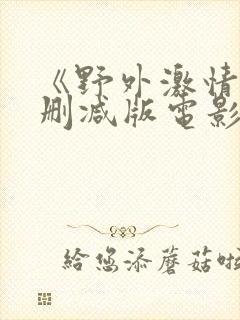 《野外激情
删减版電影
给您添蘑菇啦